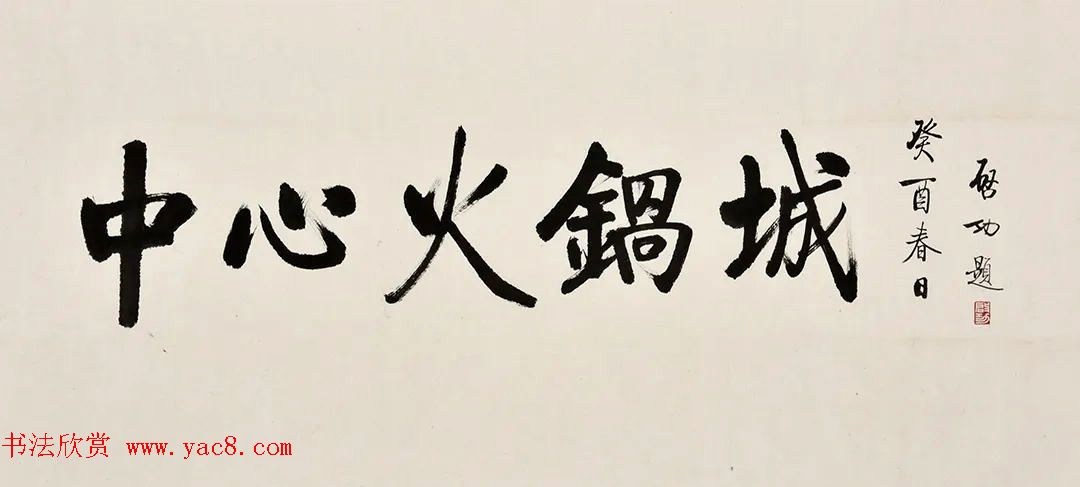 中心火鍋城
癸酉春日
启功題
书法欣赏 www.yac8.com